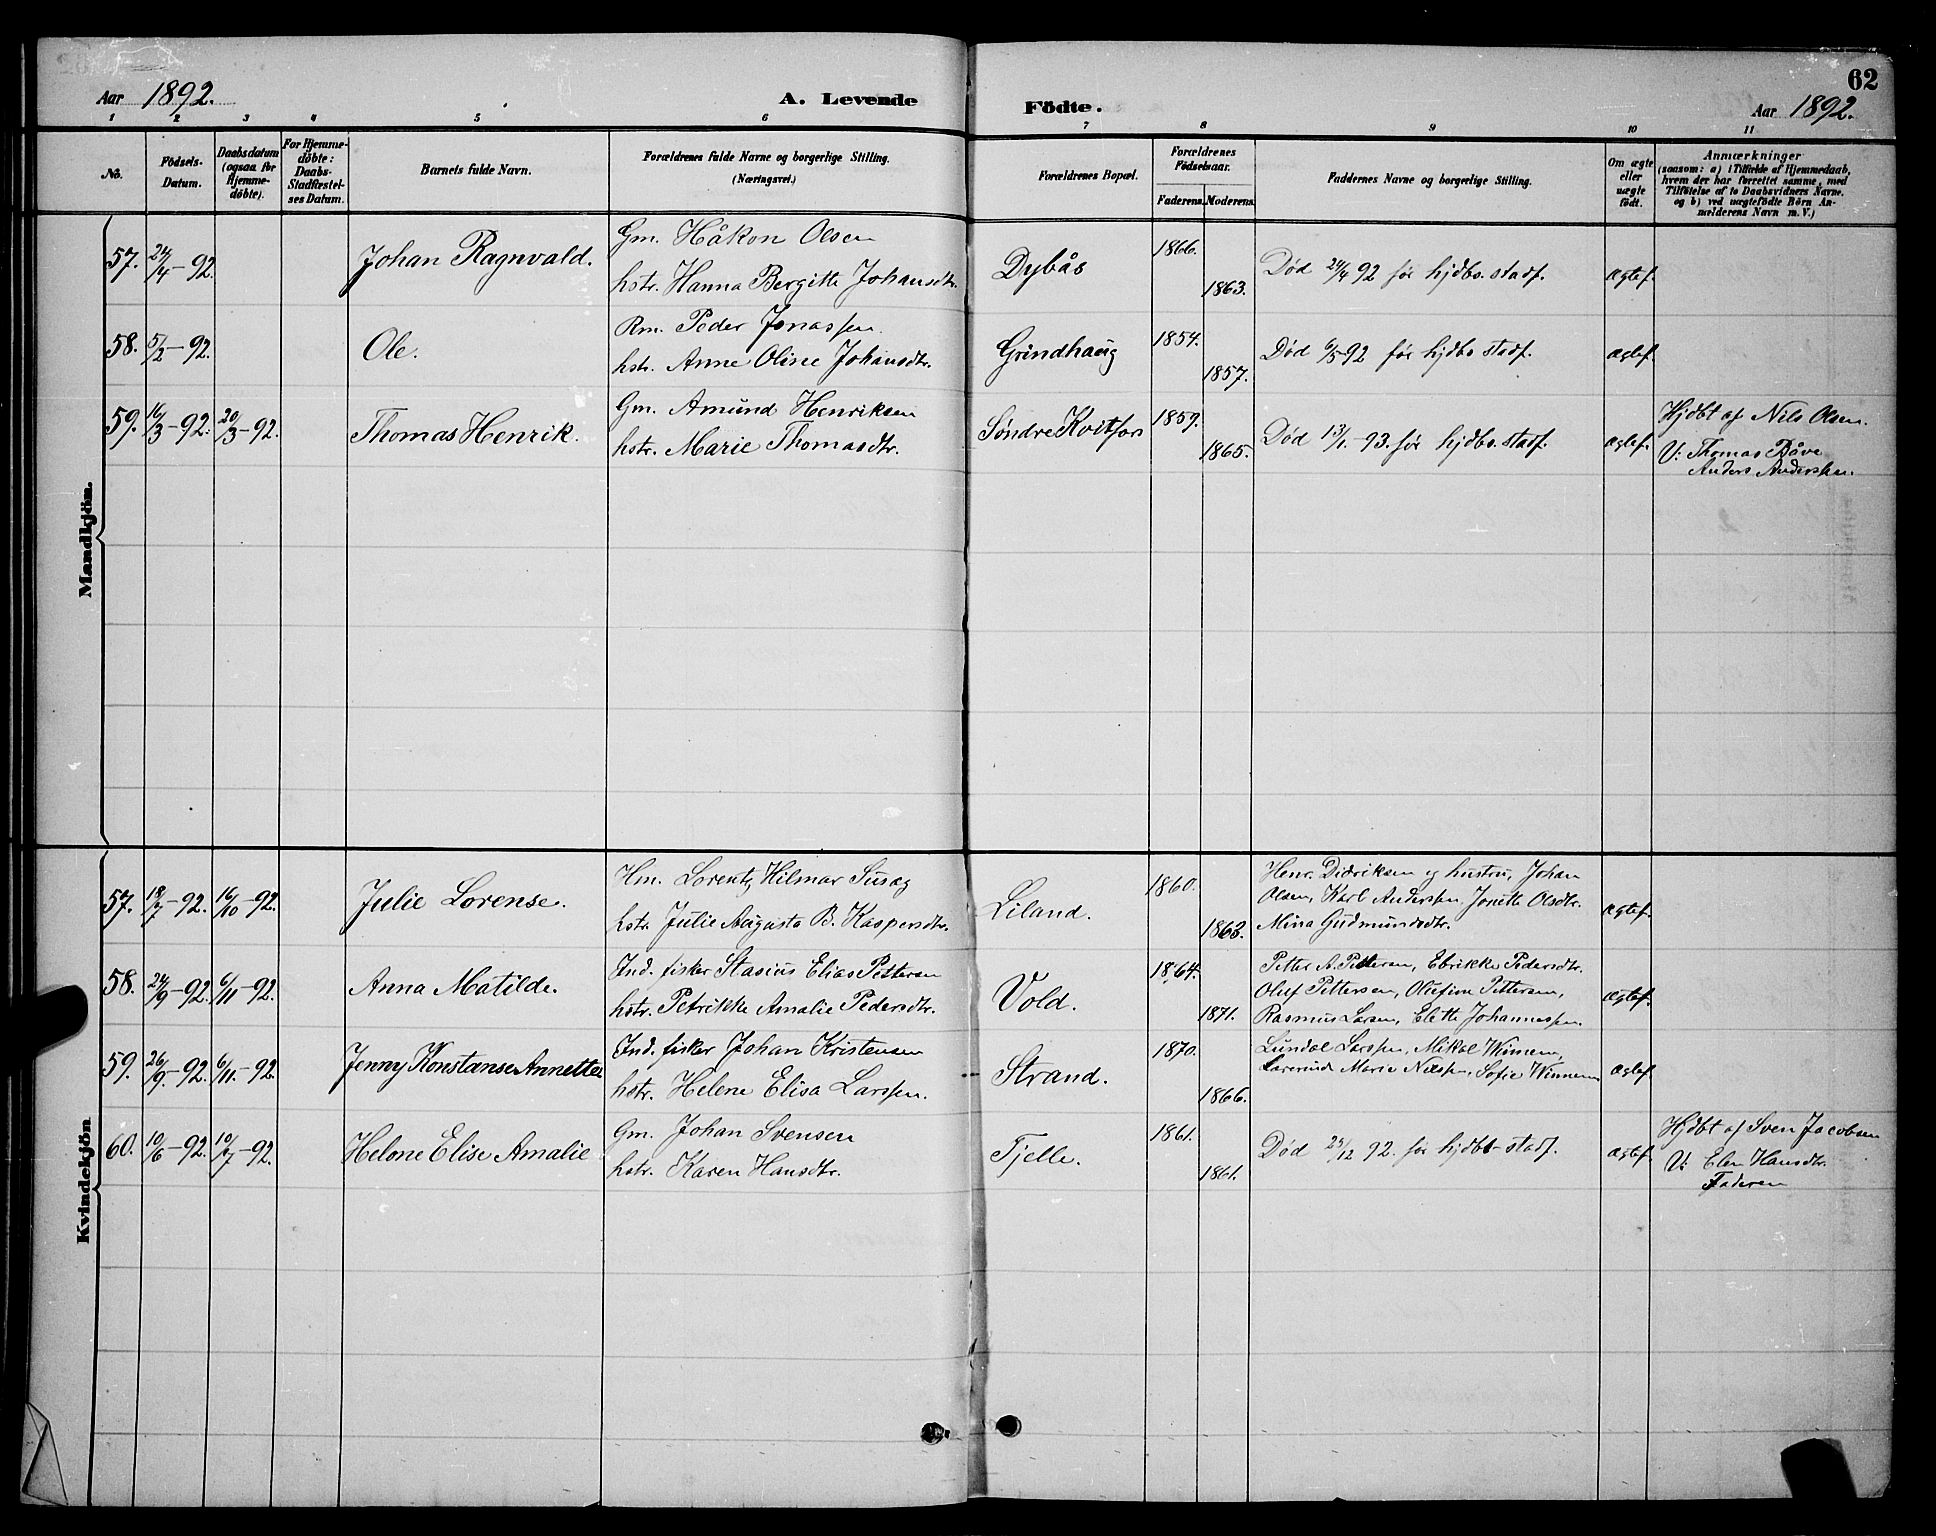 62
Aar 1892.
A. Levende
Födte.
Aar 1892.
1 2 3 4 5 6 7 8 9 10 11
No.
Födsels-
Datum.
Daabsdatum
(ogsaa for
Hjemme-
döbte).
For Hjemme-
döbte:
Daabs-
Stadfæstel-
ses Datum.
Barnets fulde Navn.
Forældrenes fulde Navne og borgerlige Stilling.
(Næringsvei.)
Forældrenes Bopæl.
Forældrenes
Födselsaar.
Faderens.
Moderens.
Faddernes Navne og borgerlige Stilling.
Om ægte
eller
uægte
födt.
Anmærkninger
(saasom: a) i Tilfælde af Hjemmedaab,
hvem der har forrettet samme, med
Tilföielse af to Daabsvidners Navne.
og b) ved uægtefödte Börn An-
mælderens Navn m. V.)
Mandkjön.
57. 24/4-92. Johan Ragnvald. Gm. Håkon Olsen
hstr. Hanna Bergitte Johansdtr. Dybås 1866. 1863. Død 24/4 92 før hjdbs. stadf. ægtef.
58. 5/2-92. Ole. Rm. Peder Jonassen
hstr. Anne Oline Johansdtr. Grindhaug 1854. 1857. Død 6/5 92 før hjdbs stadf. ægtef.
59. 16/3-92. 20/3-92. Thomas Henrik. Gm. Amund Henriksen
hstr. Marie Thomasdtr. Søndre Kvitfors 1859. 1865. Død 13/1-93. før hjdbs. stadf. ægtef. Hjdbt af Nils Olsen.
V: Thomas Båva
Anders Anderssen.
Kvindekjön
57. 18/7-92. 16/10-92. Julie Lorense. Hm. Lorentz Hilmar Susæg
hstr. Julie Augasta B. Kaspersdtr. Liland. 1860. 1863. Henr. Didriksen og hustru, Johan
Olsen, Karl Anderssen Jonette Olsdtr.
Mina Gudmundsdtr. ægtef.
58. 24/9-92. 6/11-92. Anna Matilde. Ind. fisker Stasius Elias Pettersen
hstr. Petrikke Amalie Pedersdtr. Vold. 1864. 1871. Petter A. Pettersen, Ebrikke Pedersdtr.
Oluf Pettersen, Olufine Pettersen,
Rasmus Larsen, Elette Johannessen. ægtef.
59. 26/9-92. 6/11-92. Jenny Konstanse Annette Ind. fisker Johan Kristensen
hstr. Helene Elisa Larssen. Strand. 1870. 1866. Larssen, Mikal Winnem,
Marie Nilsen, Sofie Winnem ægtef.
60. 10/6-92. 10/7-92. Helene Elise Amalie Gm. Johan Svensen
hstr. Karen Hansdtr. Tjelle. 1861. 1861. Død 25/12 92. før hjdbs-stadf. ægtef. Hjdbt af Sven Jacobsen
V: Elen Hansdtr.
Faderen